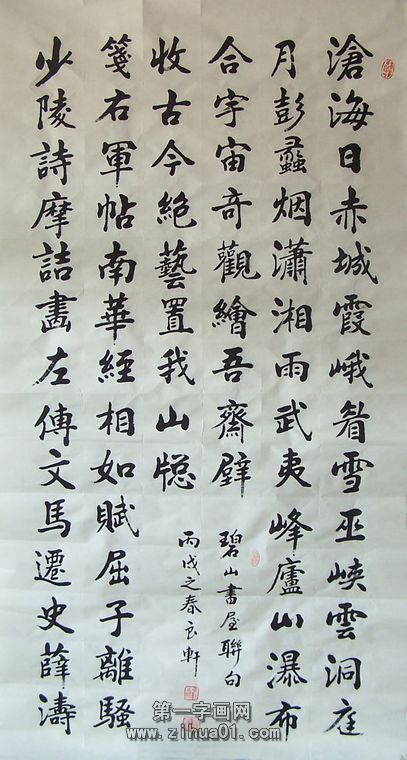 滄海日赤城霞峨眉雪巫峽雲洞庭
月彭蠡烟瀟湘雨武夷峰廬山瀑布
合宇宙奇觀繪吾齋壁
少陵詩摩詰畫左傳文馬遷史薛濤
箋右軍帖南華經相如賦屈子離騷
收古今絶藝置我山牕
碧山書屋聯句
丙戌之春良軒
第一字画网
www.zihua01.com